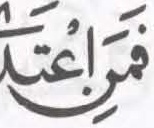 فَمَنِ اعْتَدَ